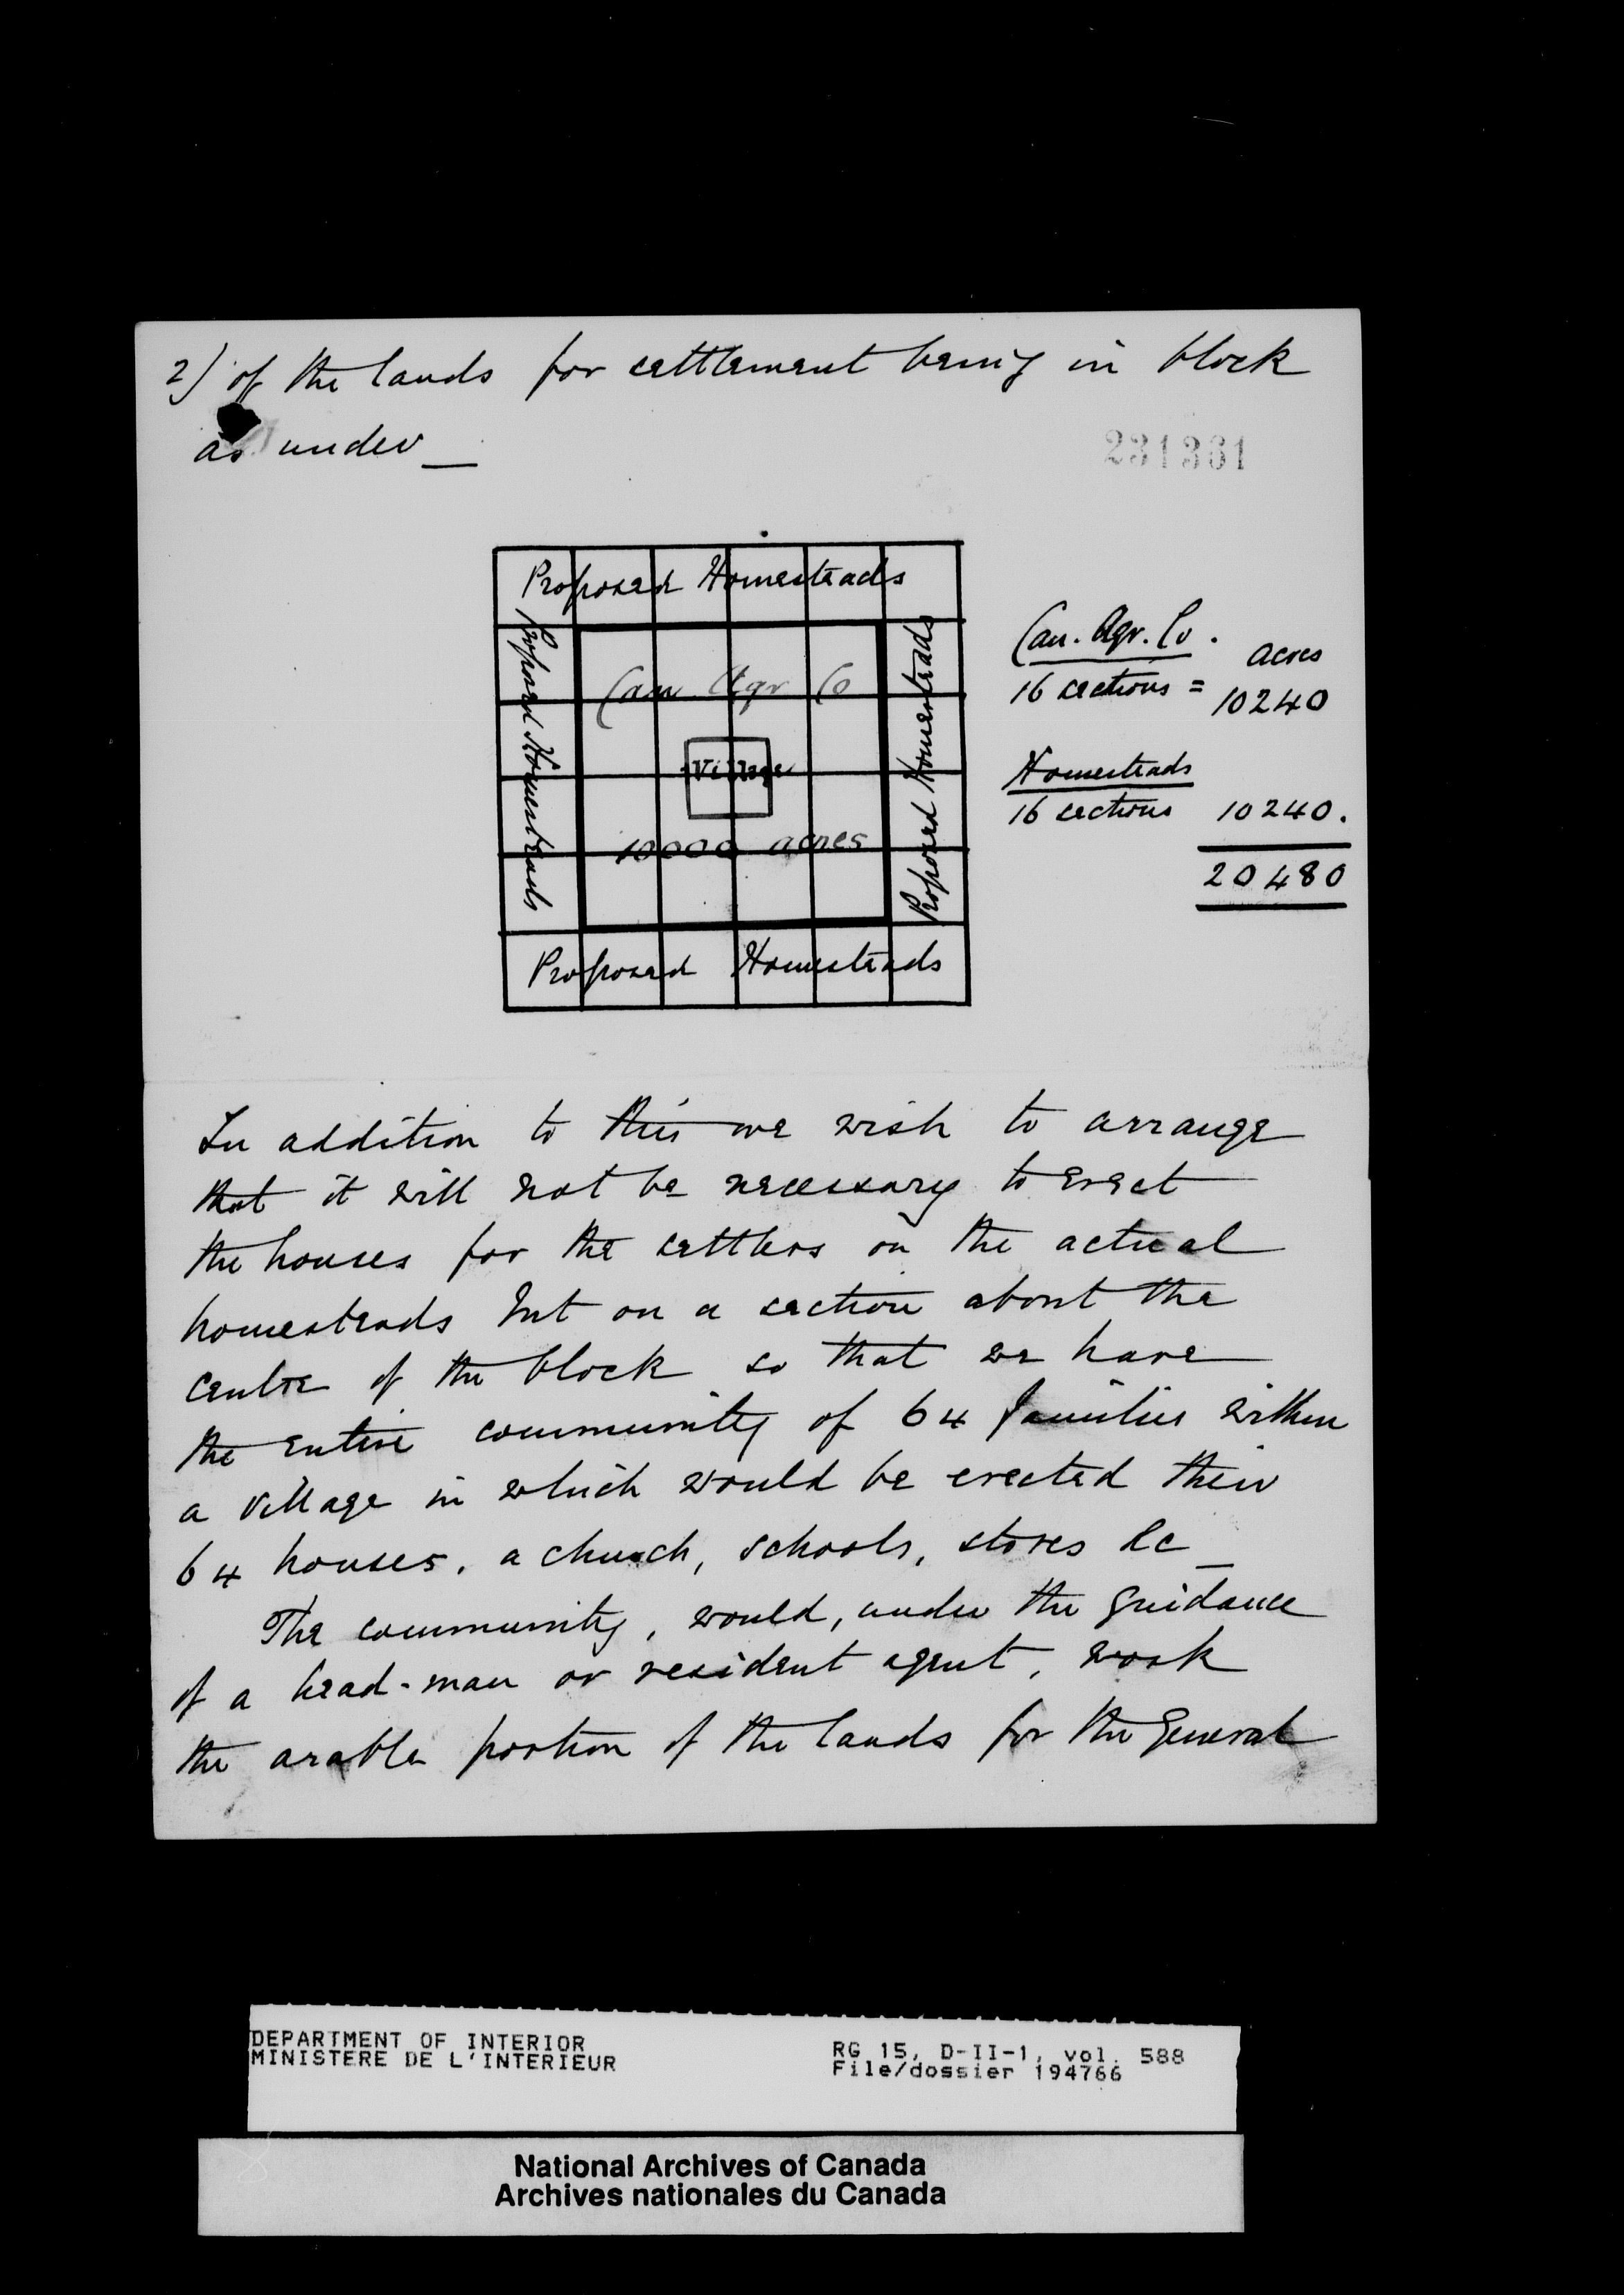 2) of the lands for settlement being in block
as under _
231361
Proposed Homesteads
Proposed Homesteads
Can Agr Co
Village
10000 acres
Proposed Homesteads
Proposed Homesteads
Can. Agr. Co.
acres
16 sections = 10240
Homesteads
16 sections 10240.
20480
In addition to this we wish to arrange
that it will not be necessary to erect
the houses for the settlers on the actual
homesteads but on a section about the
centre of the block so that we have
the entire community of 64 families within
a village in which would be erected their
64 houses, a church, schools, stores &c _
The community, would, under the guidance
of a head-man or resident agent, work
the arable portion of the lands for the general
DEPARTMENT OF INTERIOR
MINISTERE DE L'INTERIEUR
RG 15, D-II-1, vol. 588
File/dossier 194766
National Archives of Canada
Archives nationales du Canada